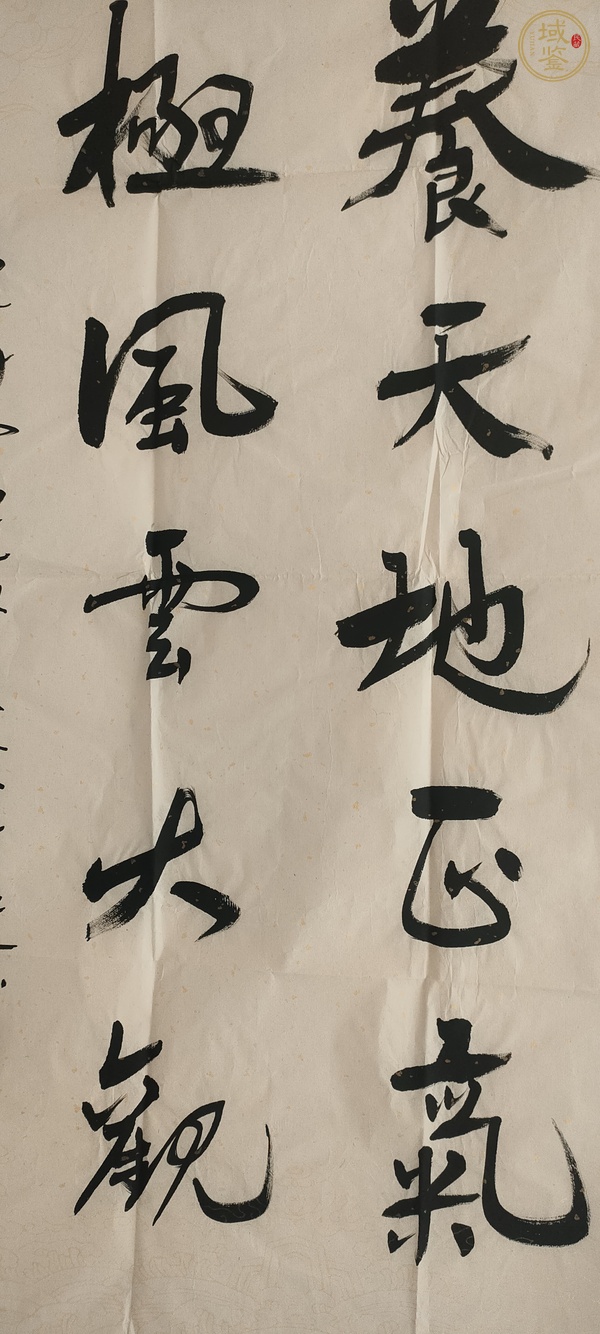 養天地正氣
極風雲大觀
域鉴